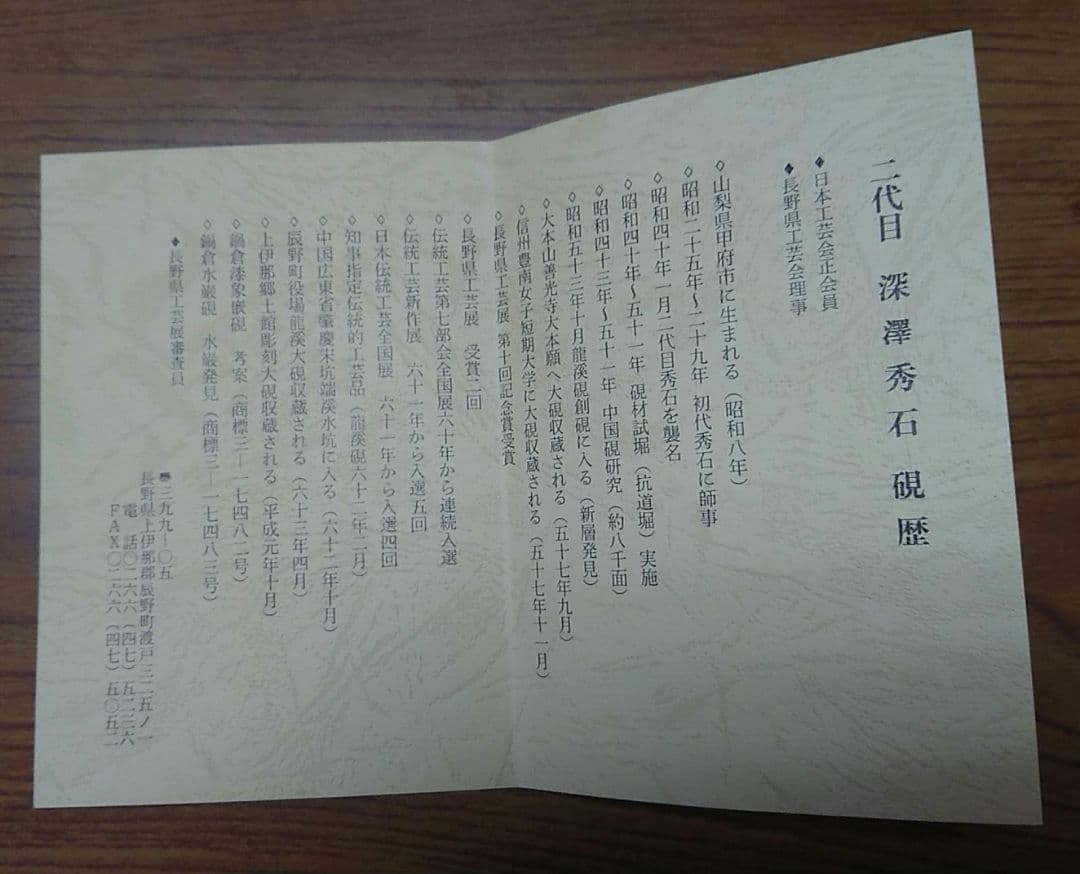 二代目 深澤秀石 硯歴
◆日本工芸会正会員
◆長野県工芸会理事
◇山梨県甲府市に生まれる（昭和八年）
◇昭和二十五年～二十九年 初代秀石に師事
◇昭和四十年一月二代目秀石を襲名
◇昭和四十年～五十一年 硯材試堀（抗道堀）実施
◇昭和四十三年～五十一年 中国硯研究（約八千面）
◇昭和五十三年十月龍溪硯創硯に入る（新層発見）
◇大本山善光寺大本願へ大硯収蔵される（五十七年九月）
◇信州豊南女子短期大学に大硯収蔵される（五十七年十一月）
◇長野県工芸展 第十回記念賞受賞
◇長野県工芸展 受賞二回
◇伝統工芸第七部会全国展六十年から連続入選
◇伝統工芸新作展 六十一年から入選五回
◇日本伝統工芸全国展 六十一年から入選四回
◇知事指定伝統的工芸品（龍溪硯六十二年二月）
◇中国広東省肇慶宋坑端溪水坑に入る（六十二年十月）
◇辰野町役場龍溪大硯収蔵される（六十三年四月）
◇上伊那郷土館彫刻大硯収蔵される（平成元年十月）
◇鍋倉漆象嵌硯 考案（商標三―一七四八二号）
◇鍋倉水巌硯 水巌発見（商標三―一七四八三号）
◆長野県工芸展審査員
三九九―〇五
長野県上伊那郡辰野町渡戸三二五ノ一
電 話〇二六六（四七）五二三六
ＦＡＸ〇二六六（四七）五〇五二